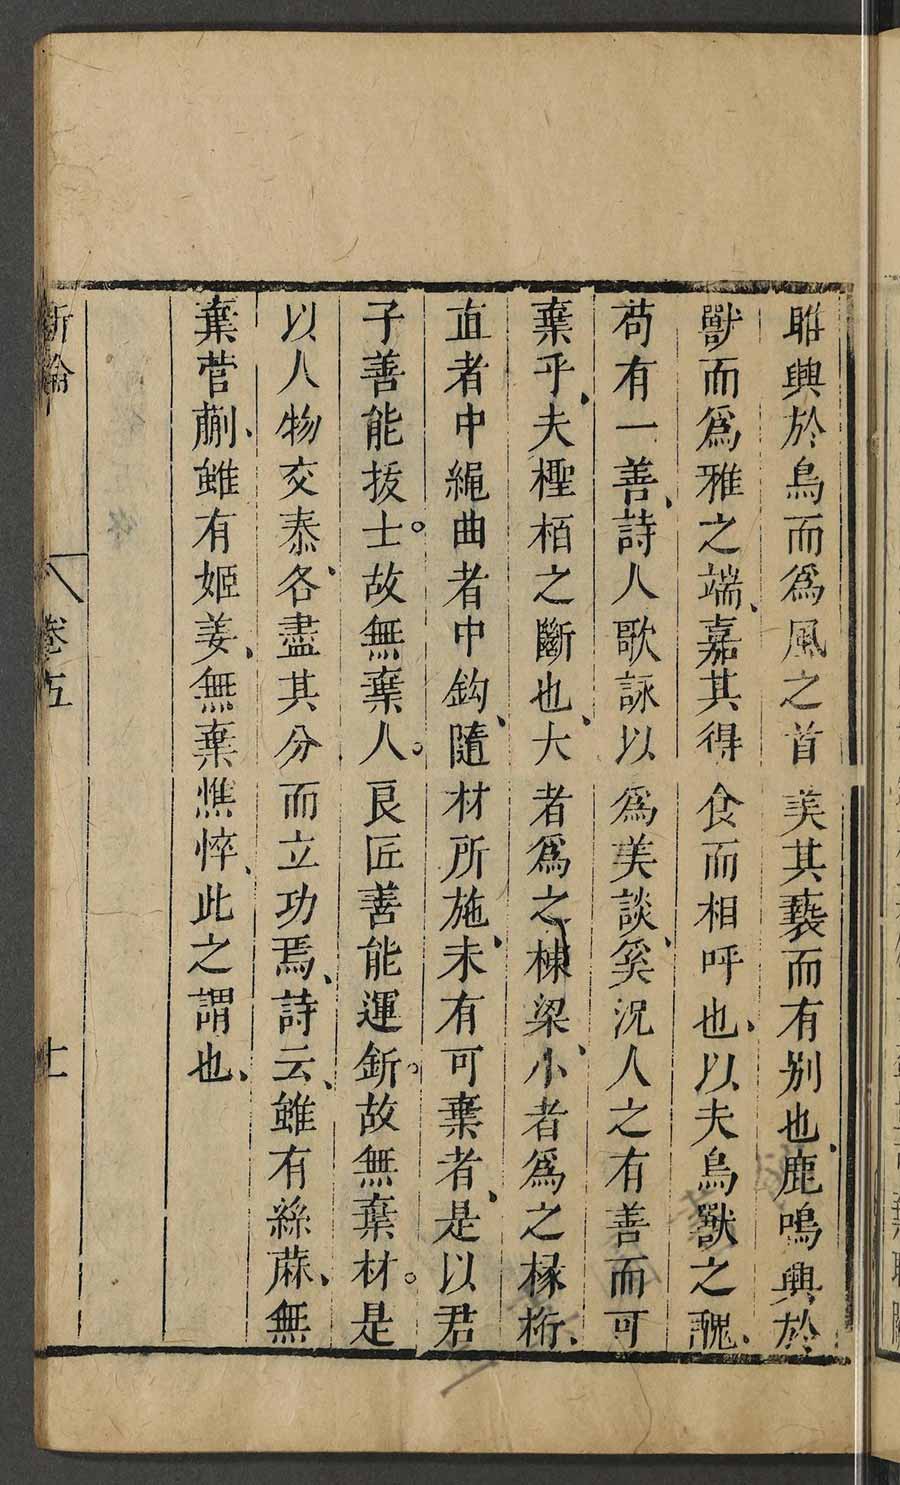 雎興於鳥而爲風之首美其褻而有别也鹿鳴興於
獸而爲雅之端嘉其得食而相呼也以夫鳥獸之醜
苟有一善詩人歌詠以爲美談奚況人之有善而可
棄乎夫檉栢之斷也大者爲之棟梁小者爲之椽桁
直者中繩曲者中鈎隨材所施未有可棄者是以君
子善能拔士。故無棄人。良匠善能運斲。故無棄材。是
以人物交泰各盡其分而立功焉詩云雖有絲蔴無
棄菅蒯雖有姬姜無棄憔悴此之謂也
新論
卷五
十一